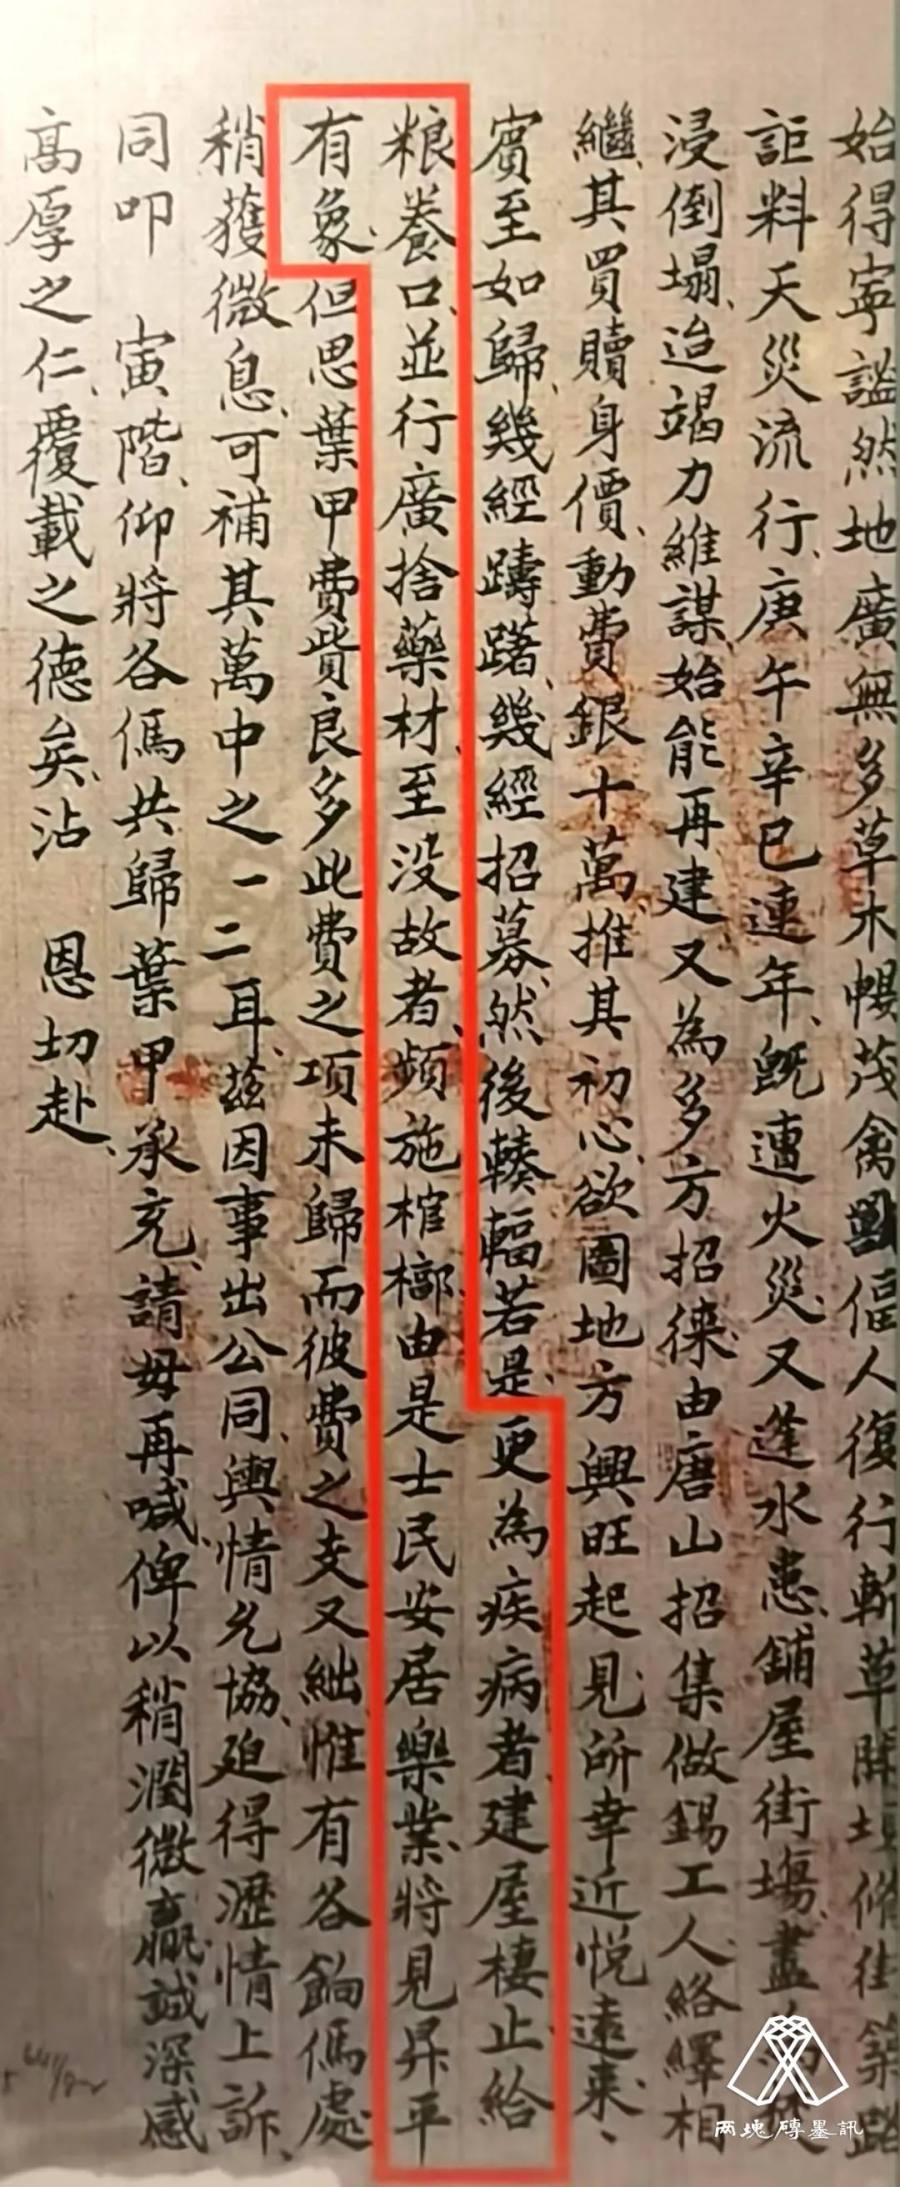 始得寧謐然地廣無多草木暢茂禽獸偪人復行斬草開填脩街築路
詎料天災流行庚午辛巳連年既遭火災又逢水患鋪屋街塲盡
浸倒塌迨竭力維謀始能再建又為多方招徠由唐山招集做錫工人絡繹相
繼其買贖身價動費銀十萬推其初心欲圖地方興旺起見所幸近悅遠來
賓至如歸幾經躊躇幾經招募然後輳輻若是更為疾病者建屋棲止給
粮養口並行廣捨藥材至没故者頻施棺槨由是士民安居樂業將見昇平
有象但思葉甲費貲良多此費之項未歸而彼費之支又絀惟有各餉傌處
稍獲微息可補其萬中之一二耳茲因事出公同輿情允協廹得瀝情上訴
同叩　寅階仰將各傌共歸葉甲承充請毋再喊俾以稍潤微贏誠深感
高厚之仁覆載之德矣沾　恩切赴
两塊磚墨訊